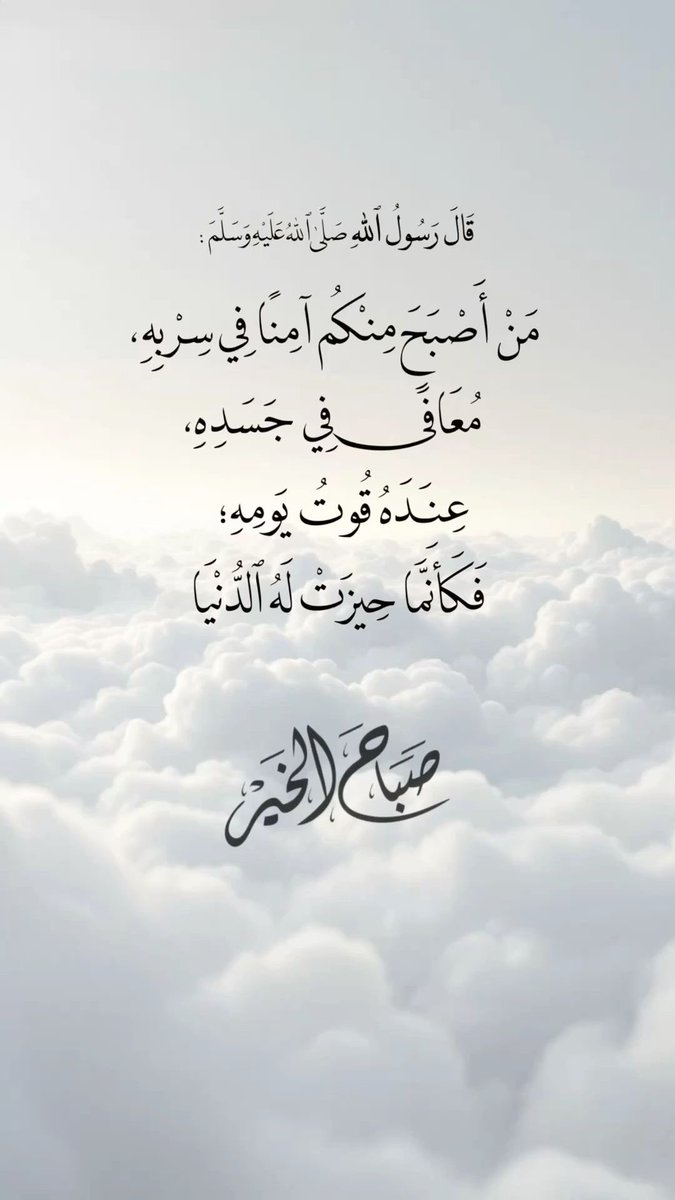 قَالَ رَسُولُ ٱللهِ صَلَّىٰ ٱللهُ عَلَيْهِ وَسَلَّمَ :
مَنْ أَصْبَحَ مِنْكُم آمِنًا فِي سِرْبِهِ،
مُعَافًى فِي جَسَدِهِ،
عِنَدَهُ قُوتُ يَومِهِ؛
فَكَأَنَّمَا حِيزَتْ لَهُ ٱلدُّنْيَا
صَبَاحَ الخَيْر